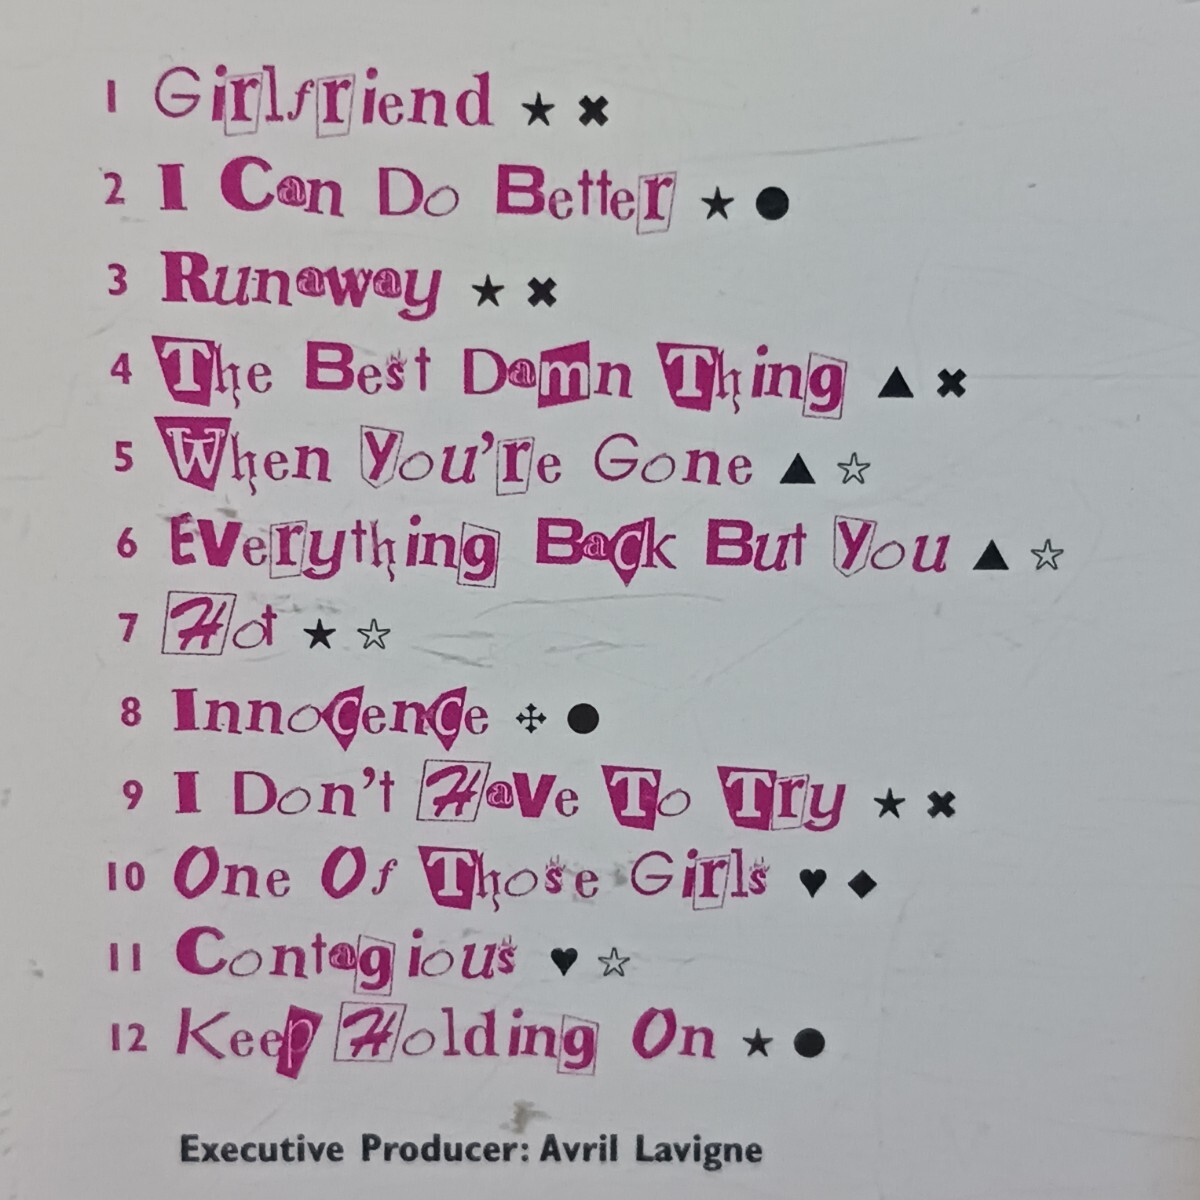 1 Girlfriend ★ ✖
2 I Can Do Better ★ ●
3 Runaway ★ ✖
4 The Best Damn Thing ▲ ✖
5 When You're Gone ▲ ☆
6 Everything Back But You ▲ ☆
7 Hot ★ ☆
8 Innocence ✣ ●
9 I Don't Have To Try ★ ✖
10 One Of Those Girls ♥ ◆
11 Contagious ♥ ☆
12 Keep Holding On ★ ●
Executive Producer: Avril Lavigne